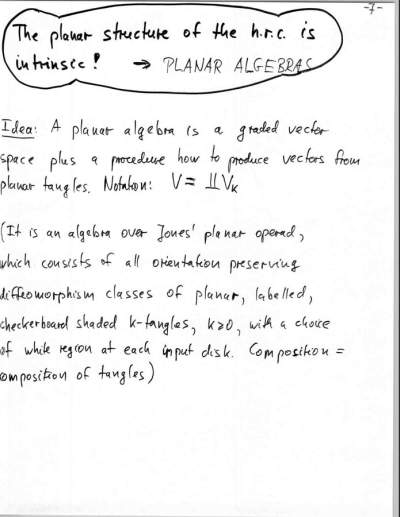 -7-
The planar structure of the h.r.c. is
intrinsic! → PLANAR ALGEBRAS
Idea: A planar algebra is a graded vector
space plus a procedure how to produce vectors from
planar tangles. Notation: V = ⨿ Vk
(It is an algebra over Jones' planar operad,
which consists of all orientation preserving
diffeomorphism classes of planar, labelled,
checkerboard shaded k-tangles, k≥0, with a choice
of white region at each input disk. Composition =
composition of tangles)